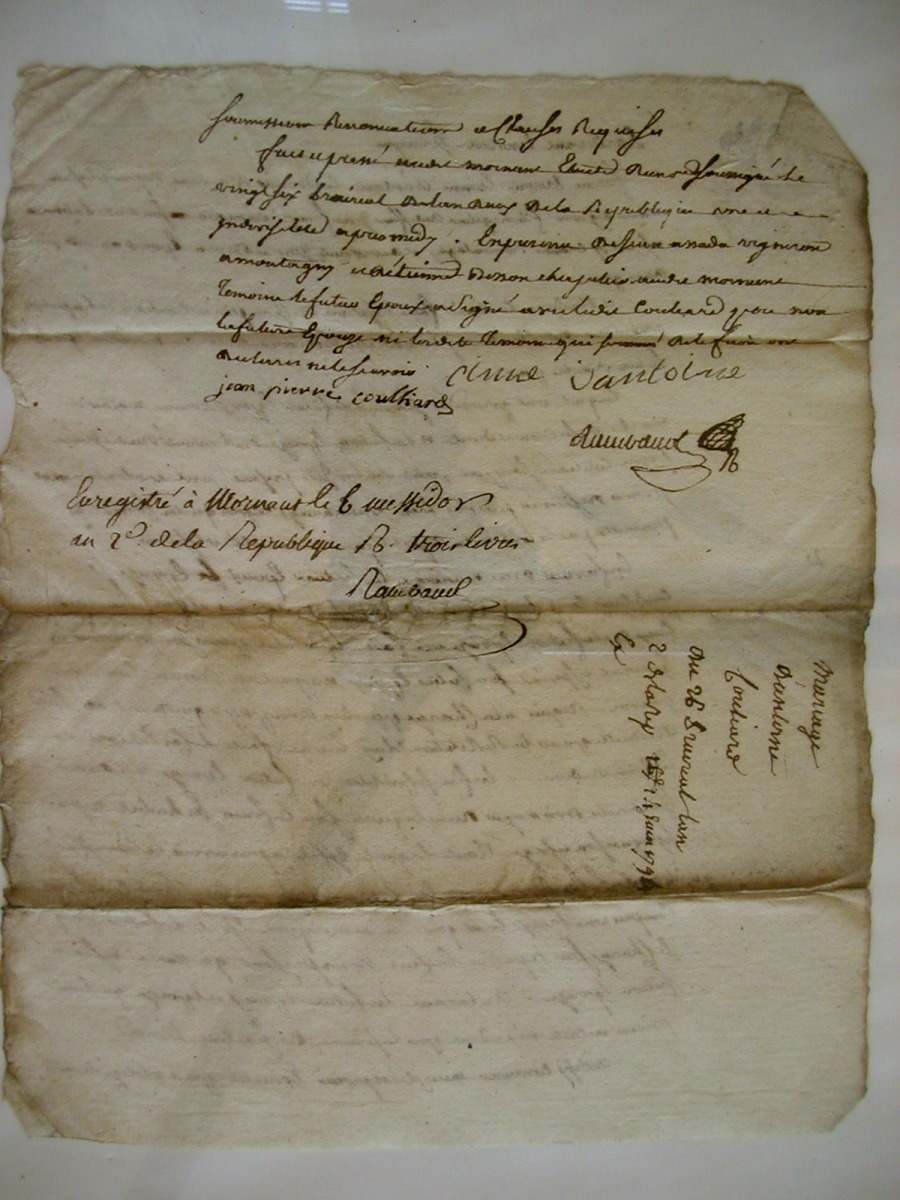 soumission Renonciations et Clauses Requises
fait et passé audit mornant Etude du no.re soussigné le
vingt six prairial de lan deux de la Republique une et
jndivisible apres midy . En presence de vigneron
a montagny et d'étienne audit mornant
Temoins le futur Epoux a signé avec ledit Couhard pou non
la future Epouse ni lesdits Temoins qui sommé de le faire ont
declaré ne le scavoir
Jean pierre couthiard
Rambaud
Enregistré à Mornant le 6 messidor
an 2.e de la Republique R. trois livres
Rambaud
Mariage
d'antoine
Couhiard
du 26 prairial lan
2 de la Rep 14 Juin 1794
Ex